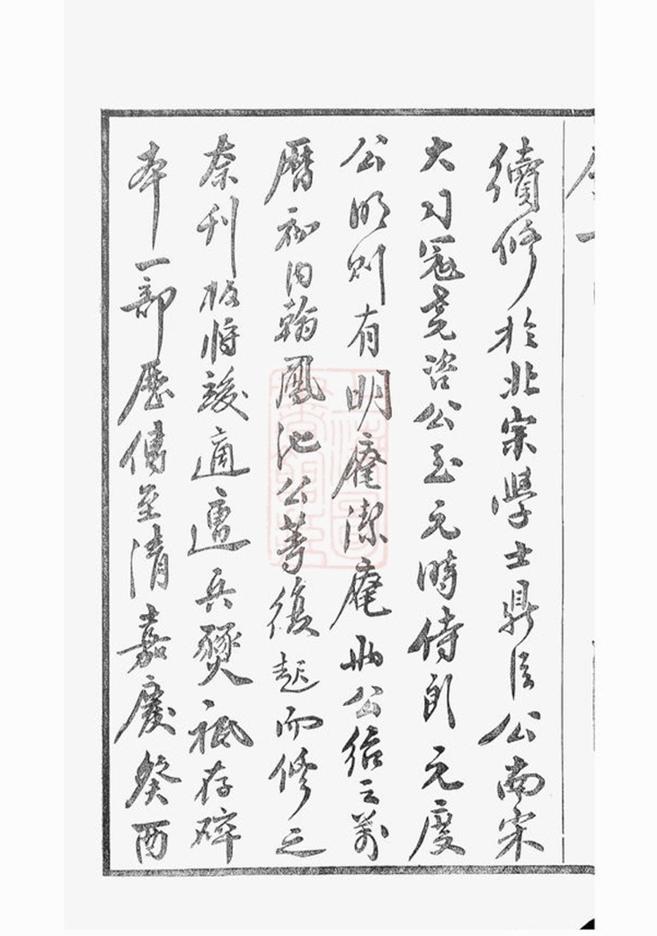 續修於北宋學士鼎臣公南宋
大司寇堯咨公至元時侍郎元度
公明則有明潔庵兩公繼之萬
曆初內翰鳳池公等復起而修之
奈刊板將竣適遭兵燹祇存碎
本一部歷傳至清嘉慶癸酉